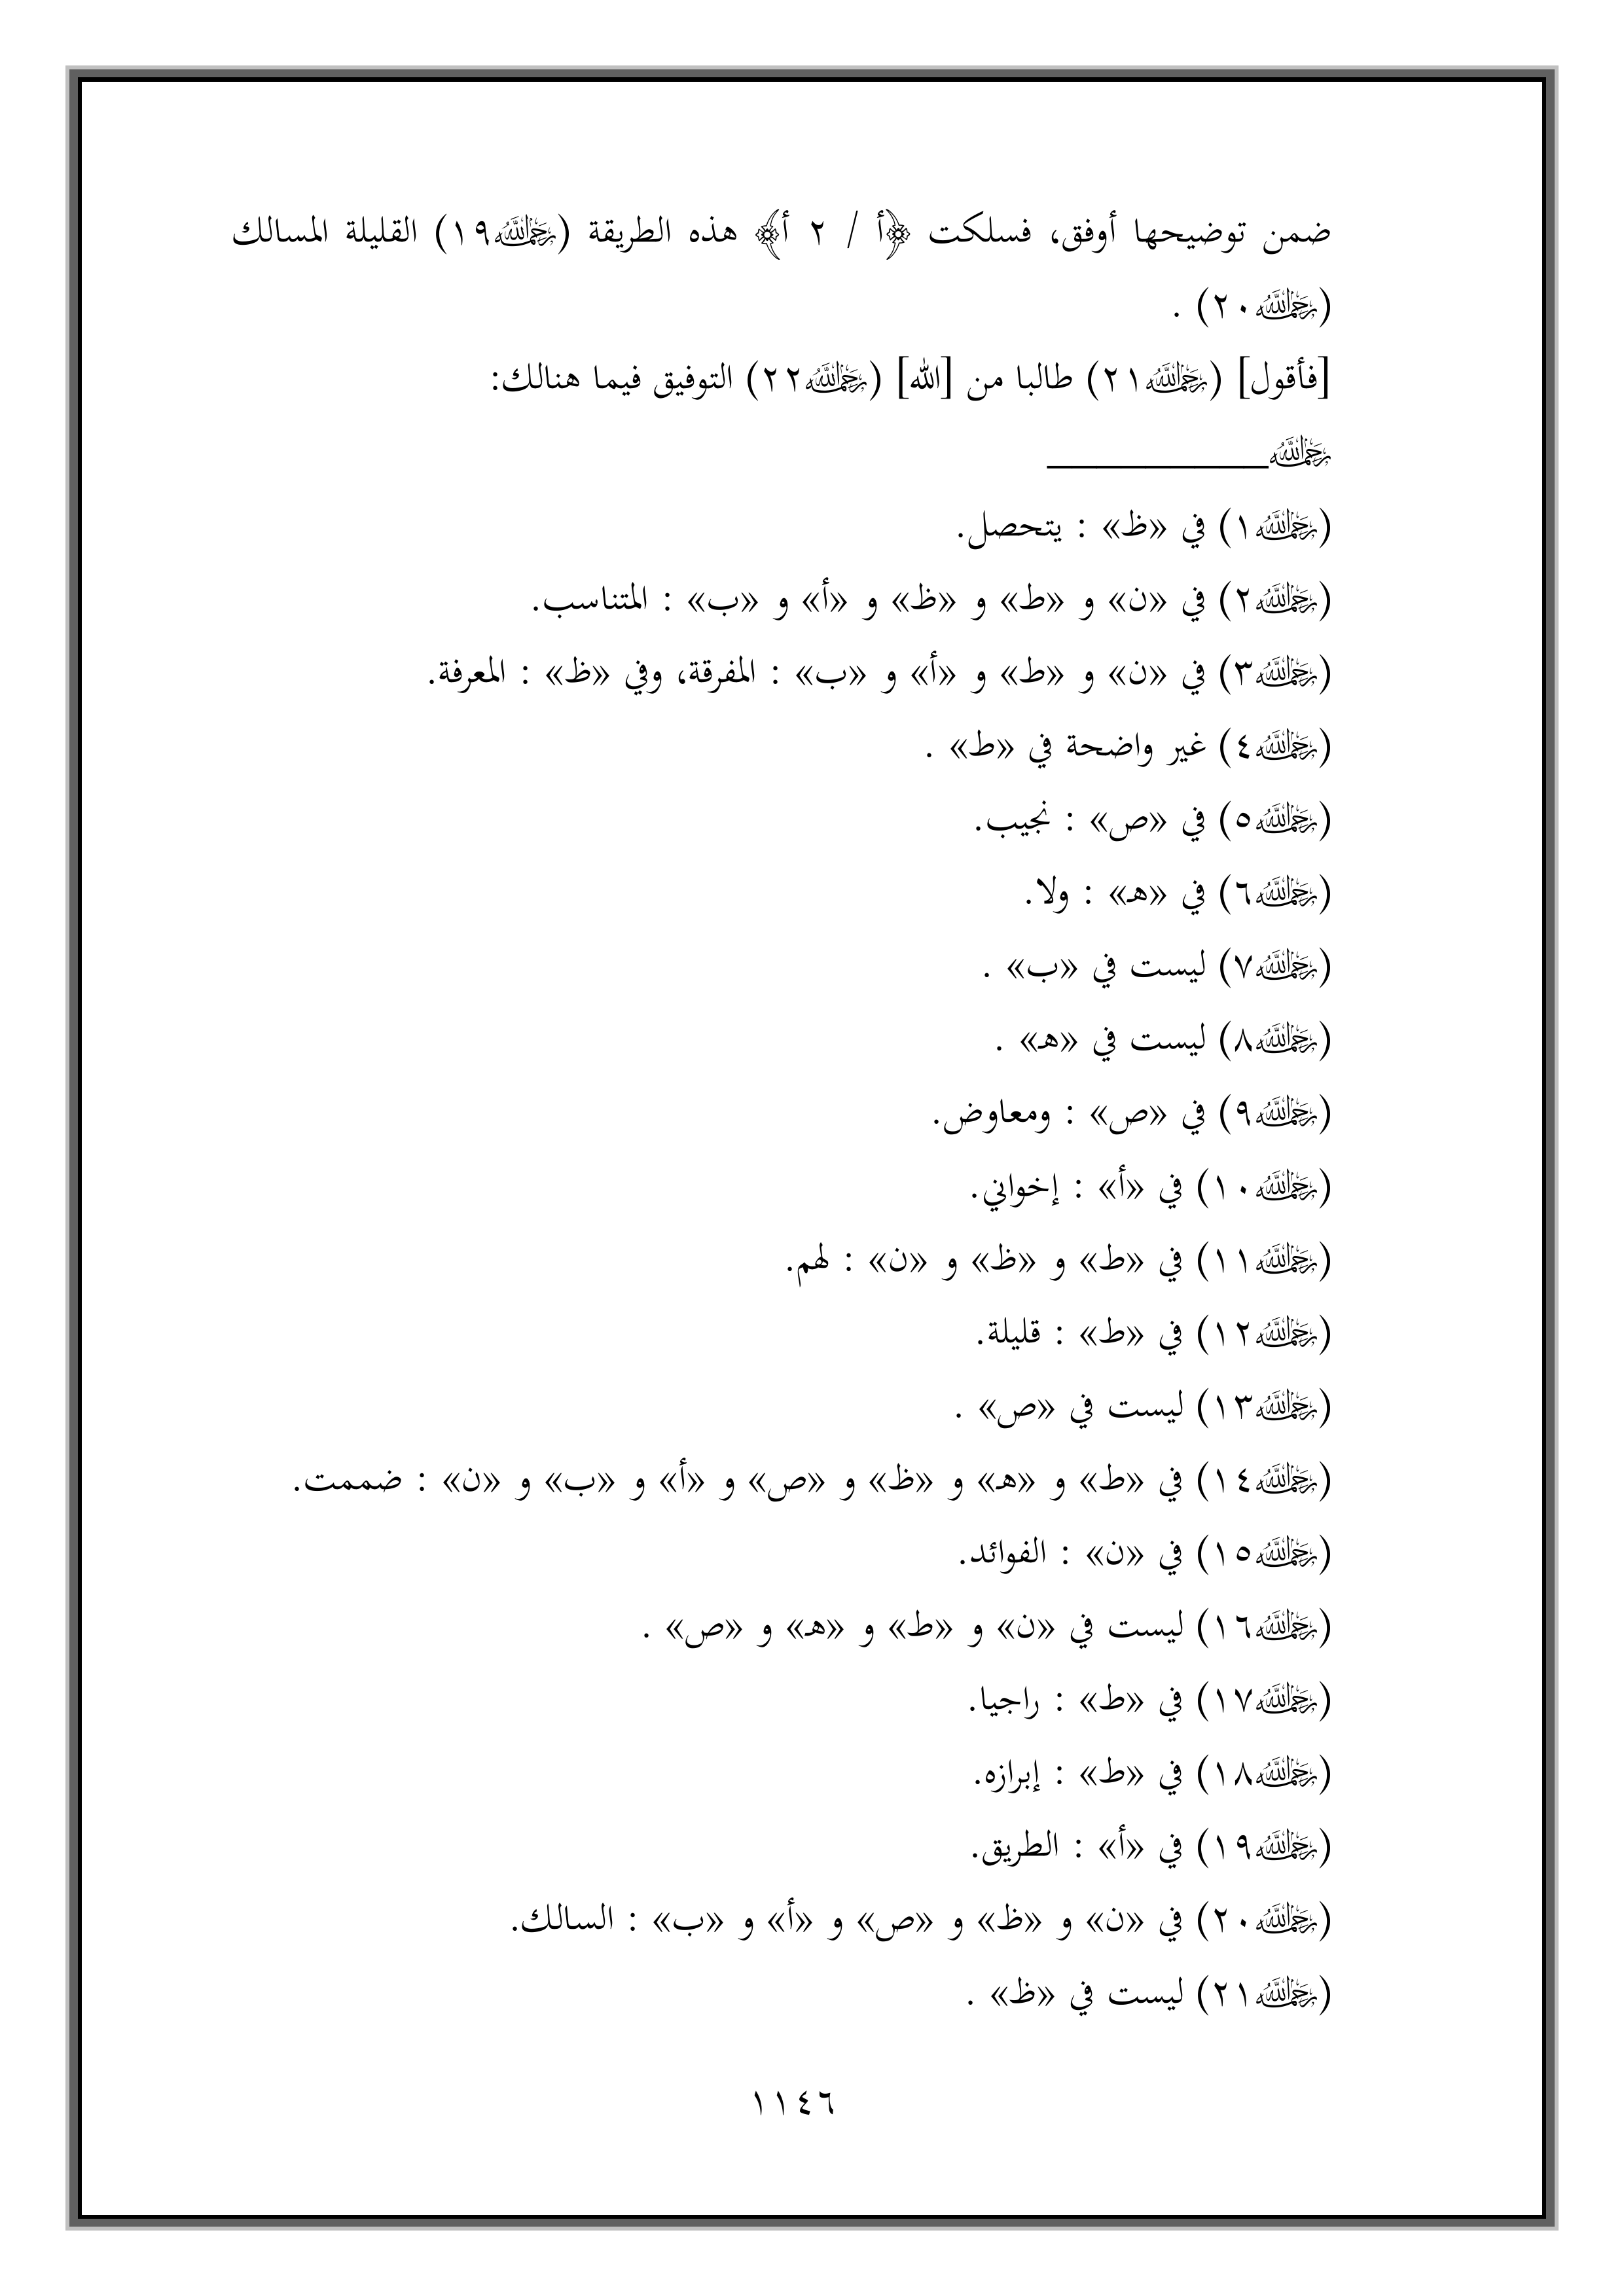 ضمن توضيحها أوفق، فسلكت ﴿أ / ٢ أ﴾ هذه الطريقة (﵀١٩) القليلة المسالك
(﵀٢٠) .
[فأقول] (﵀٢١) طالبا من [الله] (﵀٢٢) التوفيق فيما هنالك:
﵀__________
(﵀١) في «ظ» : يتحصل.
(﵀٢) في «ن» و «ط» و «ظ» و «أ» و «ب» : المتناسب.
(﵀٣) في «ن» و «ط» و «أ» و «ب» : المفرقة، وفي «ظ» : المعرفة.
(﵀٤) غير واضحة في «ط» .
(﵀٥) في «ص» : نجيب.
(﵀٦) في «هـ» : ولا.
(﵀٧) ليست في «ب» .
(﵀٨) ليست في «هـ» .
(﵀٩) في «ص» : ومعاوض.
(﵀١٠) في «أ» : إخواني.
(﵀١١) في «ط» و «ظ» و «ن» : لهم.
(﵀١٢) في «ط» : قليلة.
(﵀١٣) ليست في «ص» .
(﵀١٤) في «ط» و «هـ» و «ظ» و «ص» و «أ» و «ب» و «ن» : ضممت.
(﵀١٥) في «ن» : الفوائد.
(﵀١٦) ليست في «ن» و «ط» و «هـ» و «ص» .
(﵀١٧) في «ط» : راجيا.
(﵀١٨) في «ط» : إبرازه.
(﵀١٩) في «أ» : الطريق.
(﵀٢٠) في «ن» و «ظ» و «ص» و «أ» و «ب» : السالك.
(﵀٢١) ليست في «ظ» .
١١٤٦